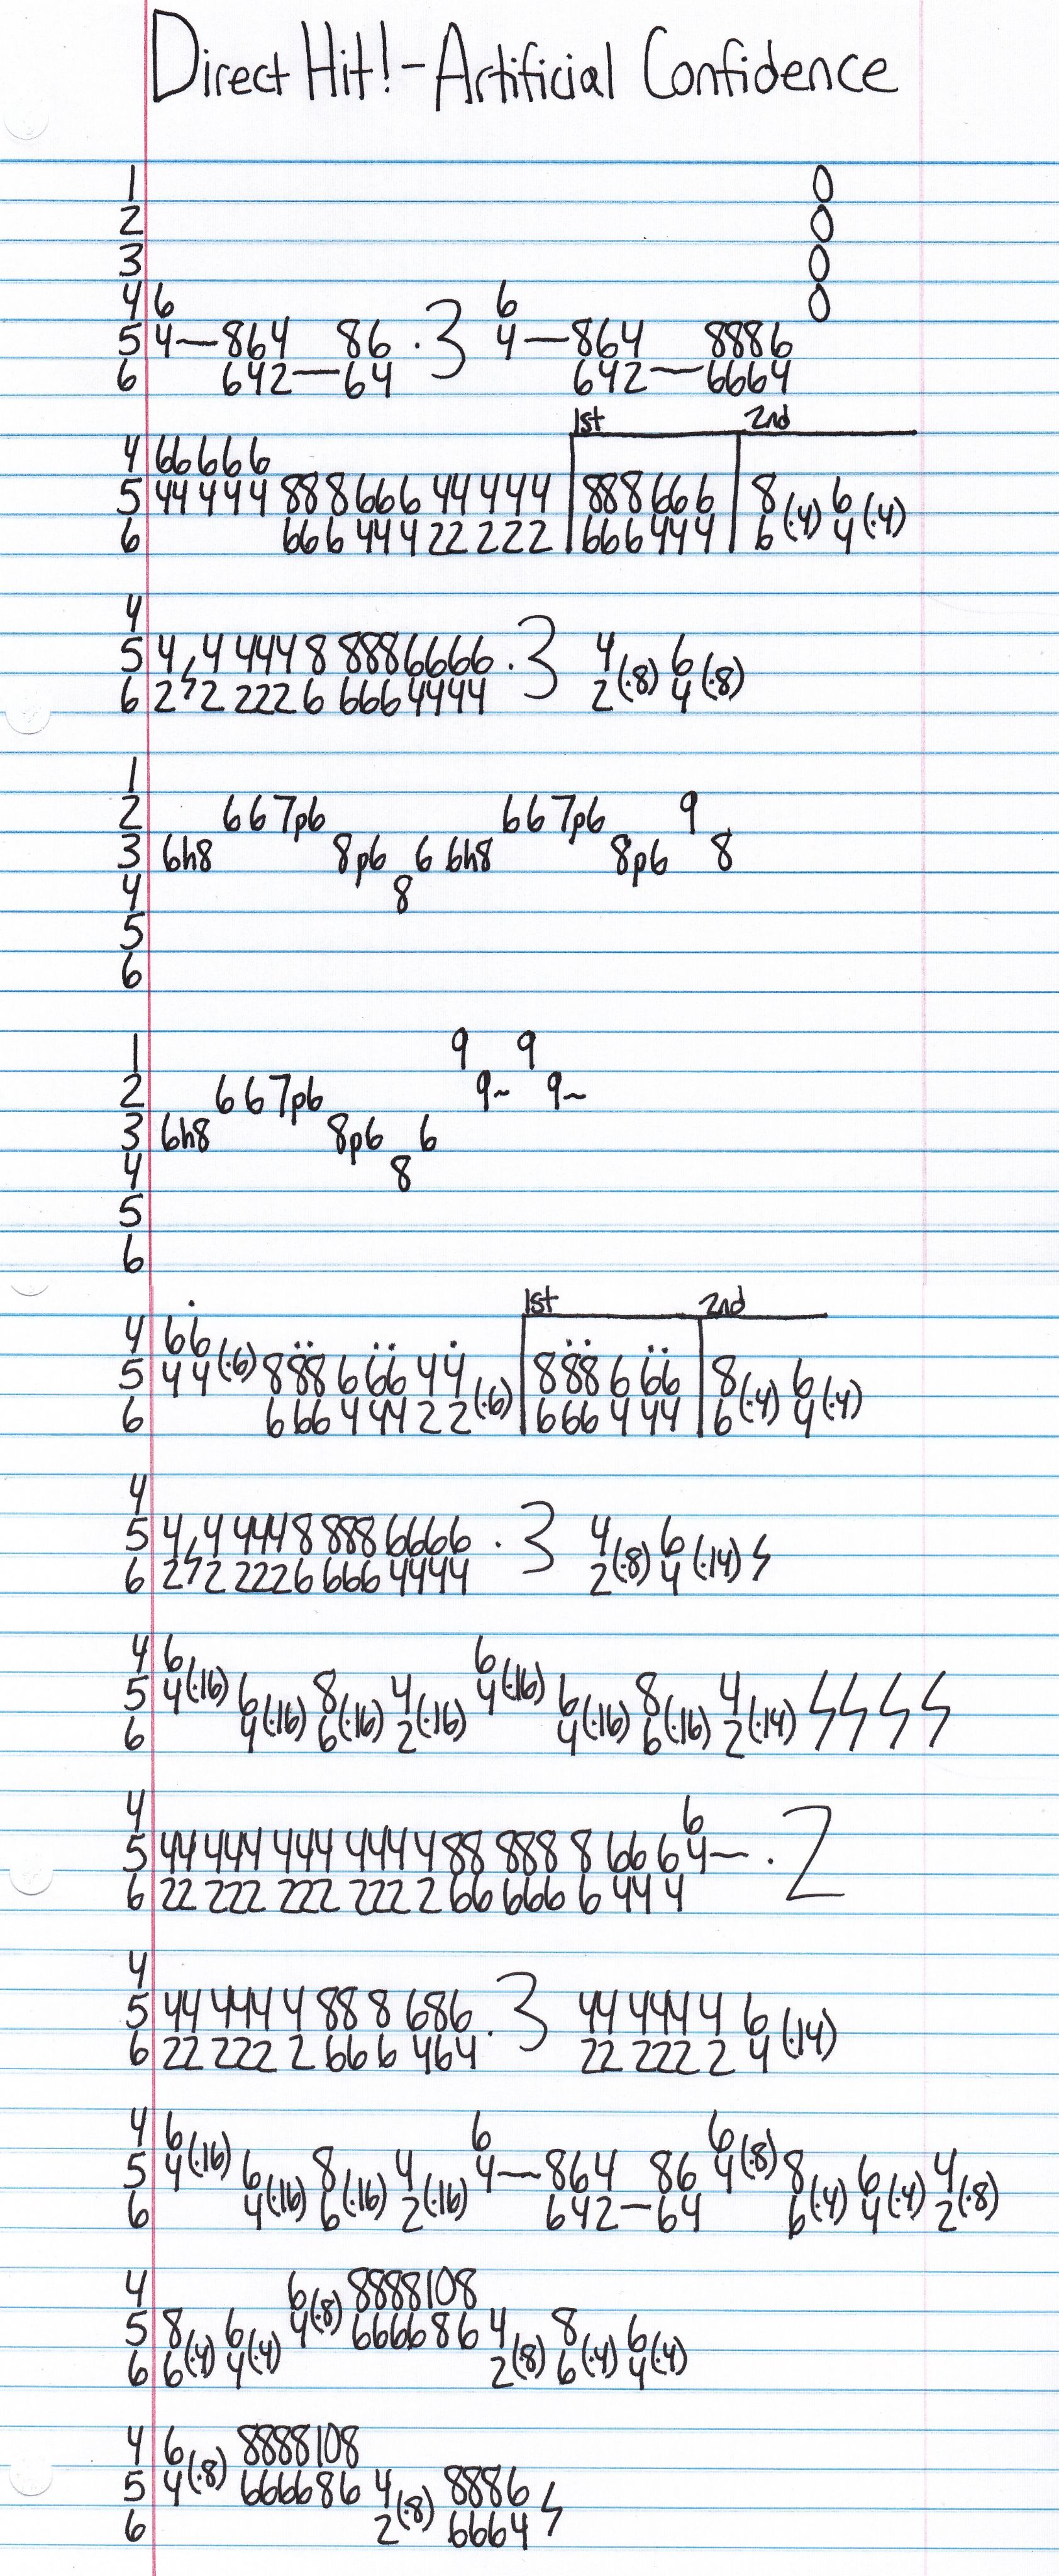 Direct Hit! - Artificial Confidence
1 0
2 0
3 0
4 6 6 0
5 4—864 86 .3 4—864 8886
6 642—64 642—6664
1st 2nd
4 66 666
5 44 444 888666 44 444 888666 8 6
6 666 444 22 222 666444 6 (·4) 4 (·4)
4
5 4 4 444 8 8886666 .3 4 6
6 2 2 222 6 6664444 2 (·8) 4 (·8)
1
2 6 6 7p6 6 6 7p6 9
3 6h8 8p6 6 6h8 8p6 8
4 8
5
6
1 9 9
2 6 6 7p6 9~ 9~
3 6h8 8p6 6
4 8
5
6
1st 2nd
4 66
5 44 (·6) 888 666 44 888 666 8 6
6 666 444 22 (·6) 666 444 6 (·4) 4 (·4)
4
5 4 4 4448 8886666 .3 4 6
6 2 2 2226 6664444 2 (·8) 4 (·14)
4 6 6
5 4 (·16) 6 8 4 4 (·16) 6 8 4
6 4 (·16) 6 (·16) 2 (·16) 4 (·16) 6 (·16) 2 (·14)
4 6
5 44 444 444 444 4 88 888 8 66 6 4— .2
6 22 222 222 222 2 66 666 6 44 4
4
5 44 444 4 88 8 686 .3 44 444 4 6
6 22 222 2 66 6 464 22 222 2 4 (·14)
4 6 6 6
5 4 (·16) 6 8 4 4—864 86 4 (·8) 8 6 4
6 4 (·16) 6 (·16) 2 (·16) 642—64 6 (·4) 4 (·4) 2 (·8)
4 6 8888108
5 8 6 4 (·8) 666686 4 8 6
6 6 (·4) 4 (·4) 2 (·8) 6 (·4) 4 (·4)
4 6 8888108
5 4 (·8) 666686 4 8886
6 2 (·8) 6664